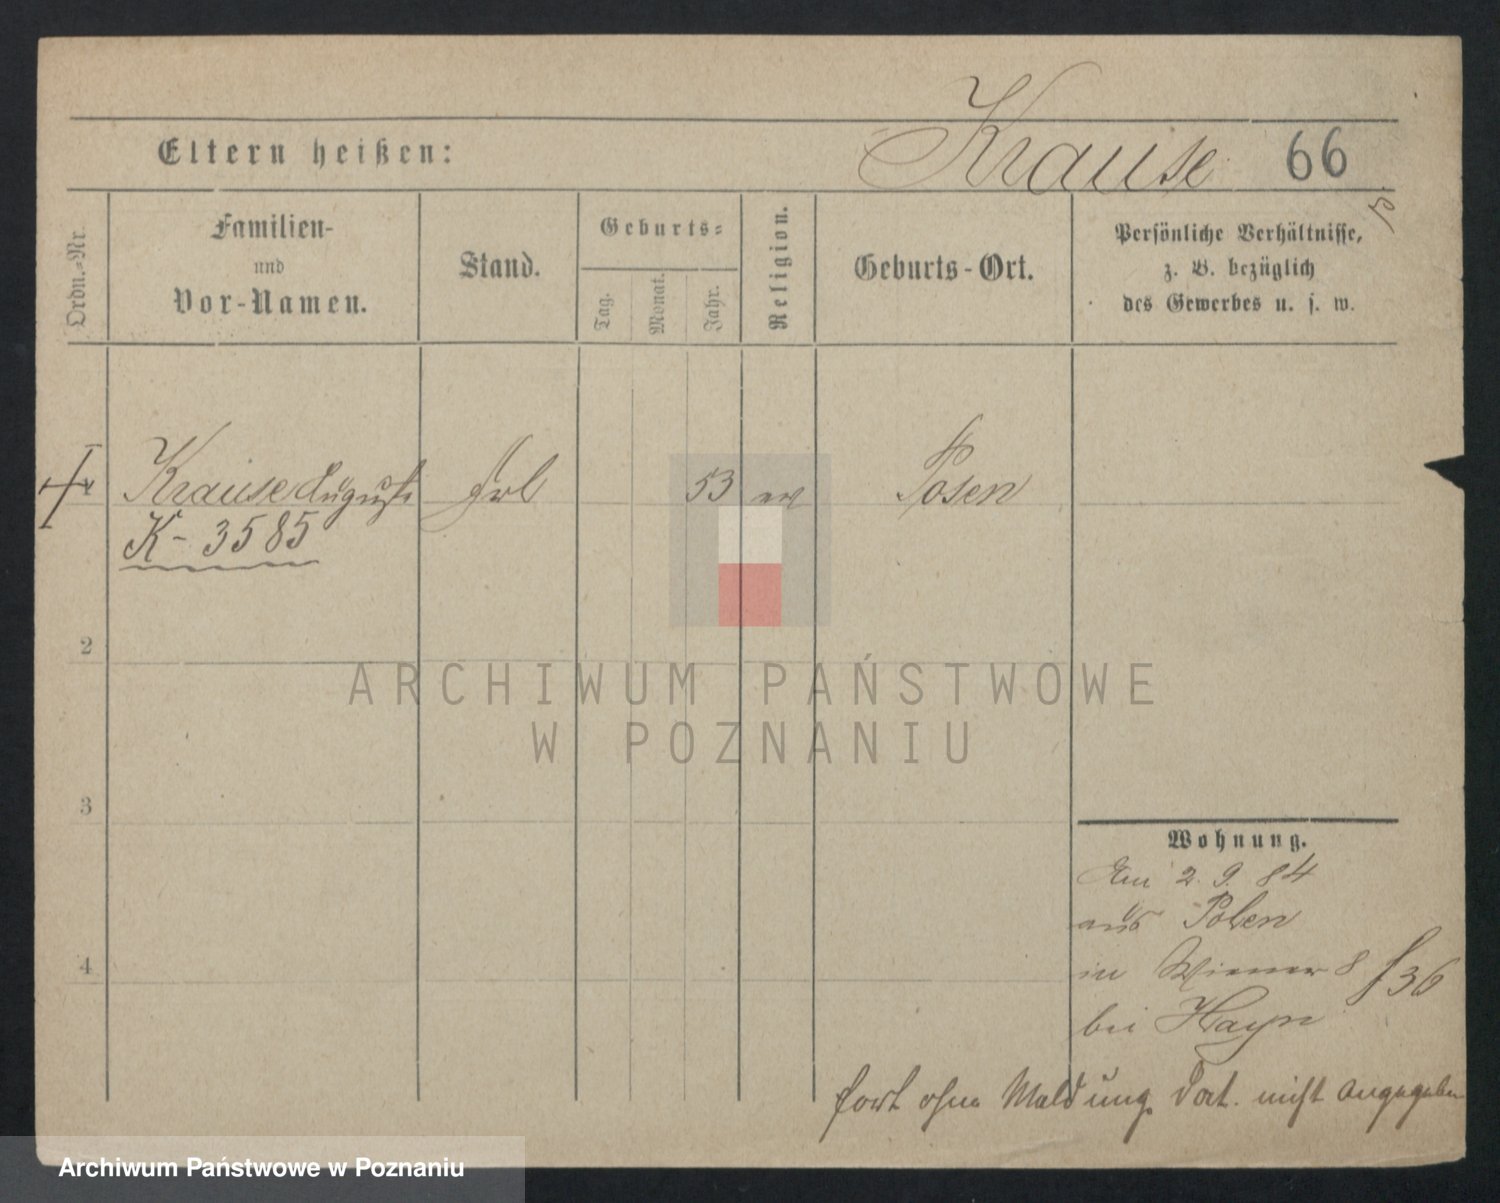 Krause 66
Eltern heißen:
Ordn.-Nr.
Familien-
und
Vor-Namen.
Stand.
Geburts-
Tag.
Monat.
Jahr.
Religion.
Geburts-Ort.
Persönliche Verhältnisse,
z. B. bezüglich
des Gewerbes u. s. w.
1 Krause Auguste Frl 53 ev Posen
K- 3585
2
ARCHIWUM PAŃSTWOWE
W POZNANIU
3
Wohnung.
Am 2. 9. 84
aus Polen
in Wiener 8 f 36
4
bei Hayn
fort ohne Meldung. Dat. nicht angegeben
Archiwum Państwowe w Poznaniu